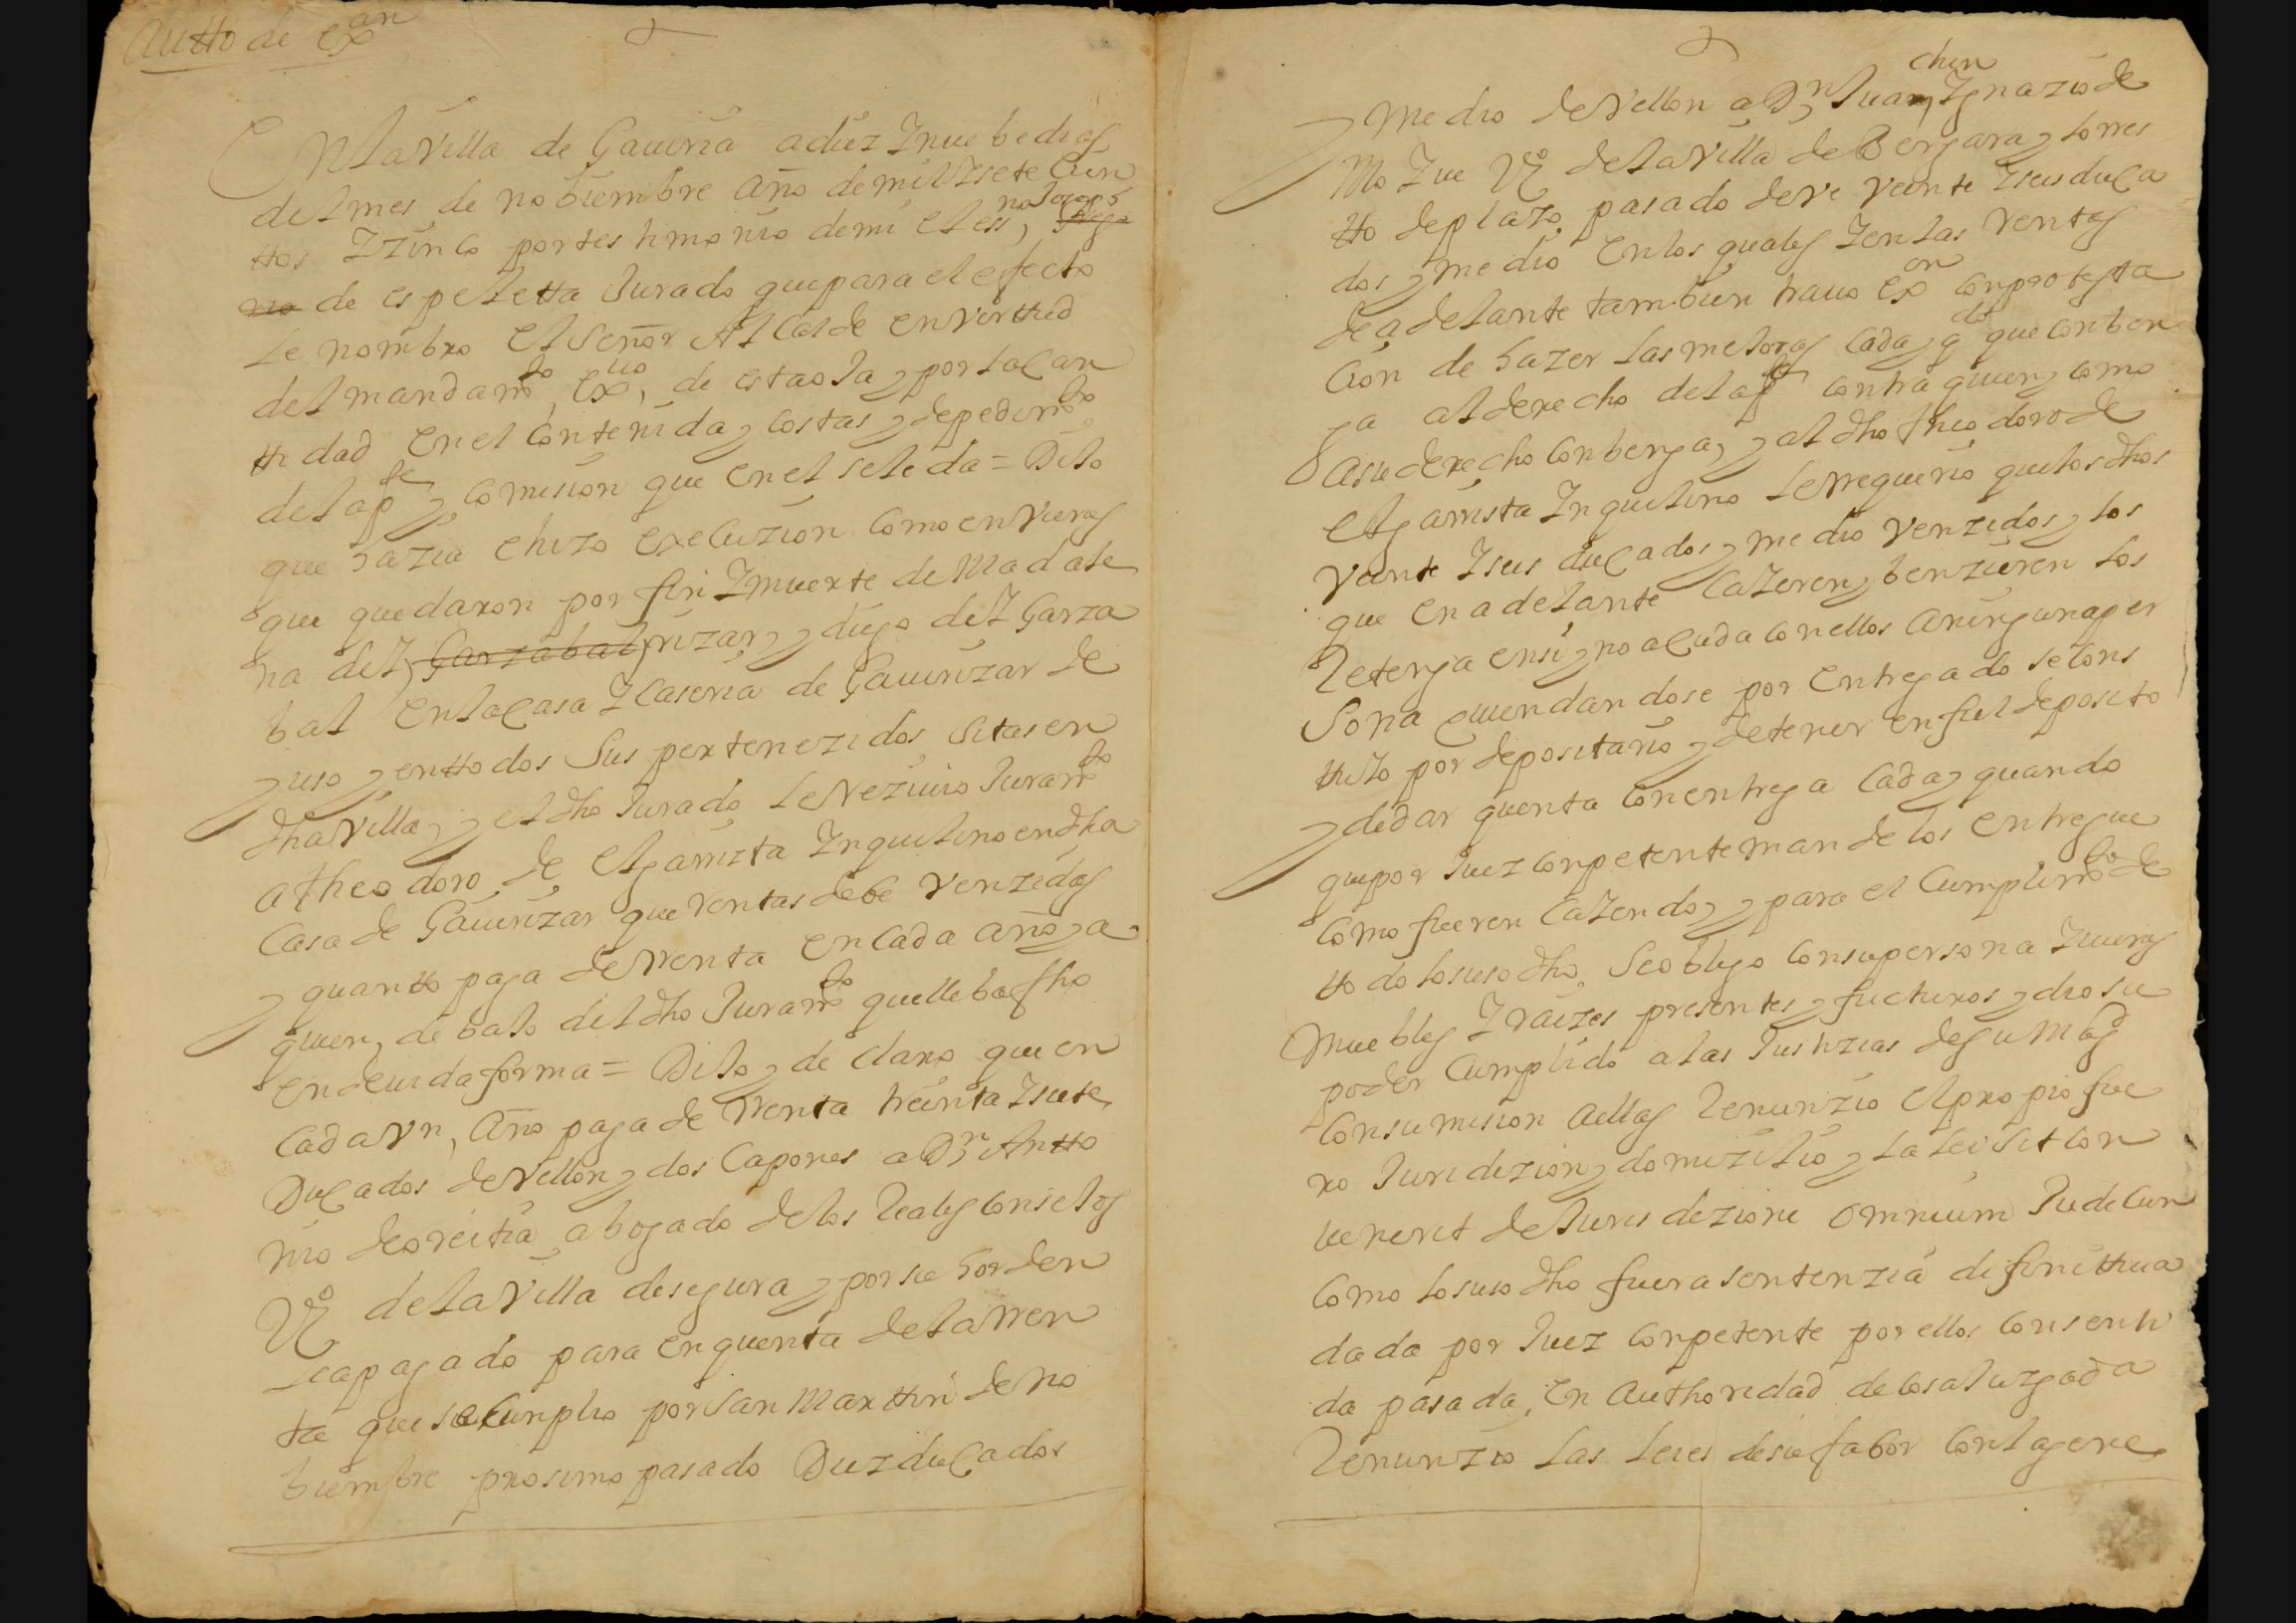 Autto de exon
En la Villa de Gauiria a diez I nuebe dias
del mes de nobiembre año de mil I siete Çien
ttos I zinCo por testimonio de mi el essno Joseph
de espeletta Jurado que para el efecto
le nombro el Señor AlCalde en virttud
del mandamto exuo, de esta oJa, y por la Can
ttidad en el Contenida, y Costas, y de pedimto
de la pte y, Comision que en el se le da = DiJo
que hazia e hizo exeCuzion Como en Vienes
que quedaron por fin I muerte de Madale
na de Garzabal yrizar, y diego de I Garza
bal en la Casa I Caseria de Gauirizar de
yuso, y en ttodos Sus pertenezidos sitas en
dha Villa, y el dho Jurado le Reziuio Juramto
a theodoro de elgarrista Inquilino en dha
Casa de Gauirizar que rentas debe Venzidas
y quanto paga de Renta en Cada año, y a
quien, de baJo del dho Juramto que lleba fho
en deuida forma = DiJo, y de Claro que en
Cada Vn, Año paga de Renta treinta I siete
DuCados de Vellon, y dos Capones a Dn Antto
nio de oreitia abogado de los Reales ConseJos
Vo de la Villa de segura, y por su horden
le a pagado para en quenta de la Rren
ta que se Cunplio por San Marttin de no
biembre proximo pasado Diez duCados
y medio de Vellon a Dn Juan Ignazio de
chin
Mo Zue Vo de la Villa de Bergara, y lo rres
tto de plazo, pasado deve Veinte I seis duCa
dos, y medio en los quales I en las rentas
de adelante tambien trauo exon Con protesta
Çion de hazer las meJoras Cada, y qdo que Conben
ga al derecho de la pte Contra quien, y Como
a su derecho Conbenga, y al dho theodoro de
elgarrista Inquilino le rrequirio que los dhos
Veinte I seis duCados, y medio Venzidos, y los
que en adelante Cayeren, y benzieren los
Retenga en si, y no aCuda Con ellos a ninguna per
Sona quien dandose por entregado se Cons
ttituJo por depositario, y detener en fiel deposito
y de dar quenta Con entrega Cada, y quando
que por Juez Conpetente man de los entregue
Como fueren Cayendo, y para el Cumplimto de
ttodo lo suso dho, Se obligo Con su persona I vienes
Muebles I raizes presentes, y fucturos, y dio su
poder Cumplido a las Justizias de su Magd
Con sumision a ellas Renunzio el propio fue
ro Juridizion, y domizilio, y la lei Sit Con
uenerit de Jurisdizione omnium Judicun
Como lo suso dho fuera sentenzia difinittiua
dada por Juez Conpetente por ellos Consenti
da pasada, en authoridad de CosaJuzgada
Renunzio las leies de su fabor Con la gene